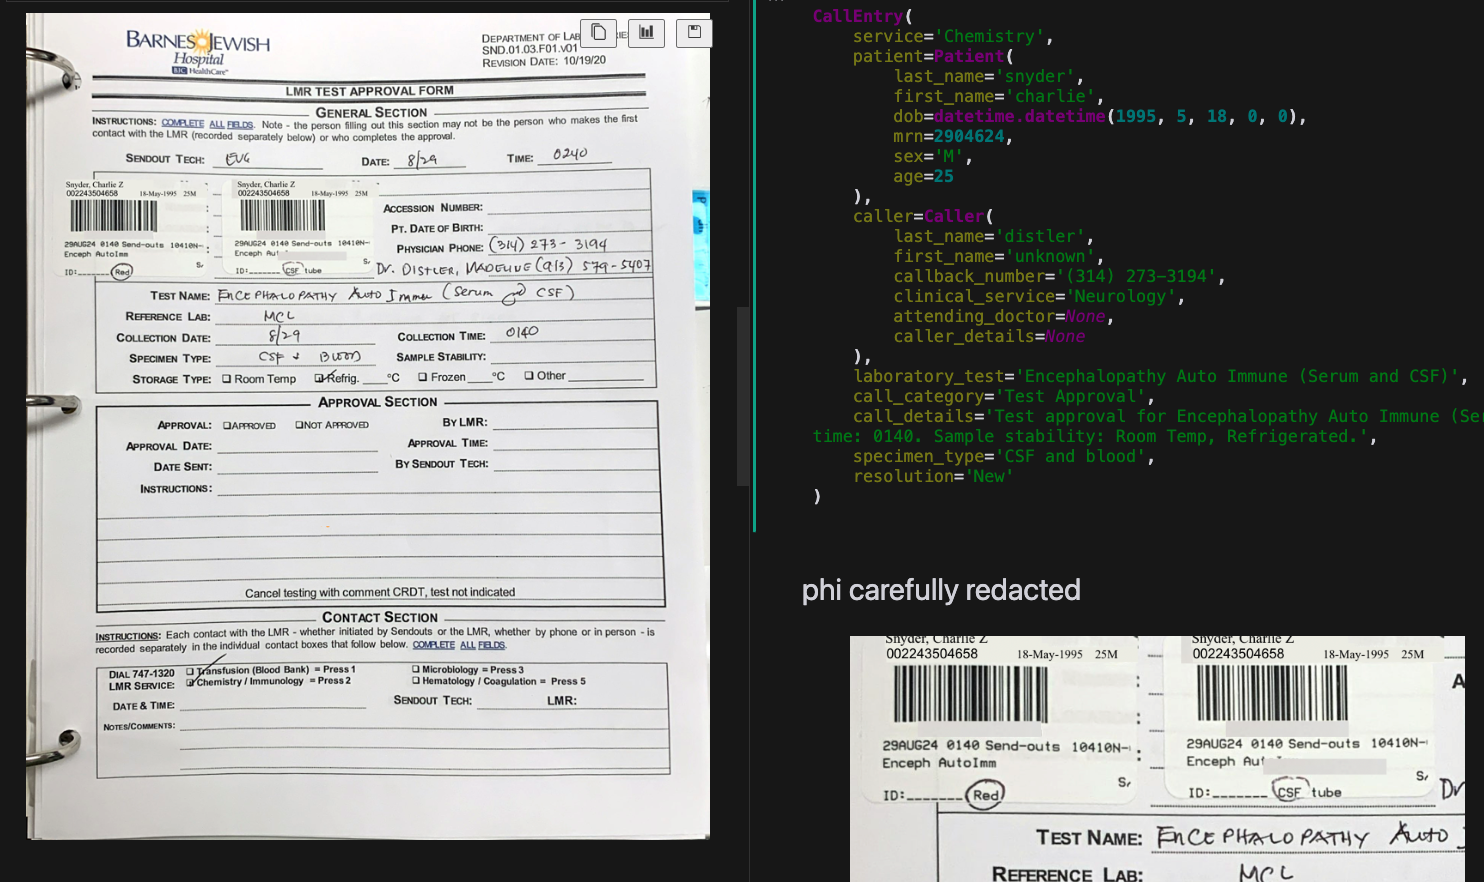 BARNES JEWISH
Hospital
BJC HealthCare
DEPARTMENT OF LAB
SND.01.03.F01.v01
REVISION DATE: 10/19/20
LMR TEST APPROVAL FORM
GENERAL SECTION
INSTRUCTIONS: COMPLETE ALL FIELDS. Note - the person filling out this section may not be the person who makes the first
contact with the LMR (recorded separately below) or who completes the approval.
SENDOUT TECH: EVG DATE: 8/29 TIME: 0240
Snyder, Charlie Z
002243504658 18-May-1995 25M
29AUG24 0140 Send-outs 10410N-
Enceph AutoImm
ID: Red
Snyder, Charlie Z
002243504658 18-May-1995 25M
29AUG24 0140 Send-outs 10410N-
Enceph Aut
ID: CSF tube
ACCESSION NUMBER:
PT. DATE OF BIRTH:
PHYSICIAN PHONE: (314) 273-3194
Dr. DISTLER, MADELINE (913) 579-5407
TEST NAME: ENCEPHALOPATHY Auto Immun (Serum and CSF)
REFERENCE LAB: MCL
COLLECTION DATE: 8/29 COLLECTION TIME: 0140
SPECIMEN TYPE: CSF + BLOOD SAMPLE STABILITY:
STORAGE TYPE: Room Temp Refrig. °C Frozen °C Other
APPROVAL SECTION
APPROVAL: APPROVED NOT APPROVED BY LMR:
APPROVAL DATE: APPROVAL TIME:
DATE SENT: BY SENDOUT TECH:
INSTRUCTIONS:
Cancel testing with comment CRDT, test not indicated
CONTACT SECTION
INSTRUCTIONS: Each contact with the LMR - whether initiated by Sendouts or the LMR, whether by phone or in person - is
recorded separately in the individual contact boxes that follow below. COMPLETE ALL FIELDS.
DIAL 747-1320 Transfusion (Blood Bank) = Press 1 Microbiology = Press 3
LMR SERVICE: Chemistry / Immunology = Press 2 Hematology / Coagulation = Press 5
DATE & TIME: SENDOUT TECH: LMR:
NOTES/COMMENTS:
CallEntry(
service='Chemistry',
patient=Patient(
last_name='snyder',
first_name='charlie',
dob=datetime.datetime(1995, 5, 18, 0, 0),
mrn=2904624,
sex='M',
age=25
),
caller=Caller(
last_name='distler',
first_name='unknown',
callback_number='(314) 273-3194',
clinical_service='Neurology',
attending_doctor=None,
caller_details=None
),
laboratory_test='Encephalopathy Auto Immune (Serum and CSF)',
call_category='Test Approval',
call_details='Test approval for Encephalopathy Auto Immune (Ser
time: 0140. Sample stability: Room Temp, Refrigerated.',
specimen_type='CSF and blood',
resolution='New'
)
phi carefully redacted
Snyder, Charlie Z
002243504658 18-May-1995 25M
29AUG24 0140 Send-outs 10410N-
Enceph AutoImm
ID: Red
Snyder, Charlie Z
002243504658 18-May-1995 25M
29AUG24 0140 Send-outs 10410N-
Enceph Aut
ID: CSF tube
Dr
TEST NAME: ENCEPHALOPATHY Auto
REFERENCE LAB: MCL